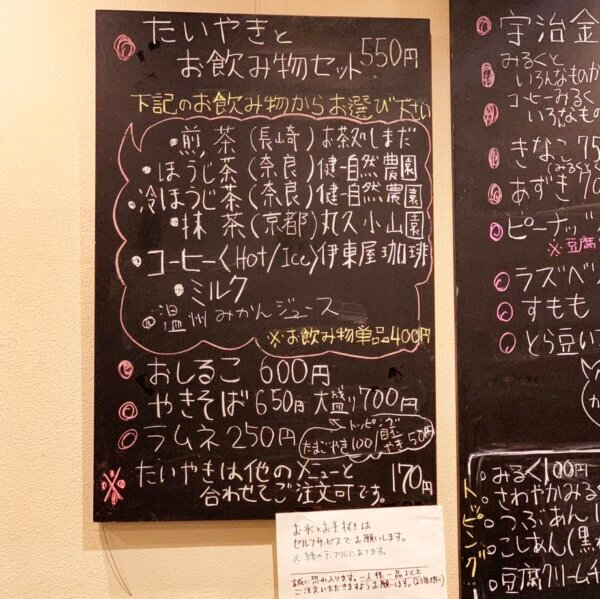 たいやきと
お飲み物セット 550円
下記のお飲み物からお選び下さい
・煎茶(長崎)お茶処しまだ
・ほうじ茶(奈良)健一自然農園
・冷ほうじ茶(奈良)健一自然農園
・抹茶(京都)丸久小山園
・コーヒー(Hot/Ice)伊東屋珈琲
・ミルク
・温州みかんジュース
※お飲み物単品400円
おしるこ 600円
やきそば 650円 大盛り700円
トッピング
たまごやき100
目玉やき50円
ラムネ 250円
※たいやきは他のメニューと
合わせてご注文可です。 170円
お水とお手拭きは
セルフサービスでお願いします。
誠に恐れ入ります。一人様一品以上
ご注文いただきますようお願い
宇治金
みるくと
いろんなものが
コーヒーみるく
いろんなもの
きなこ 75
あずき 70
ピーナッツ
※豆腐
ラズベ
すもも
とら豆い
トッピング
みるく100円
さわやかみる
つぶあん
こしあん(黒
豆腐クリームチ